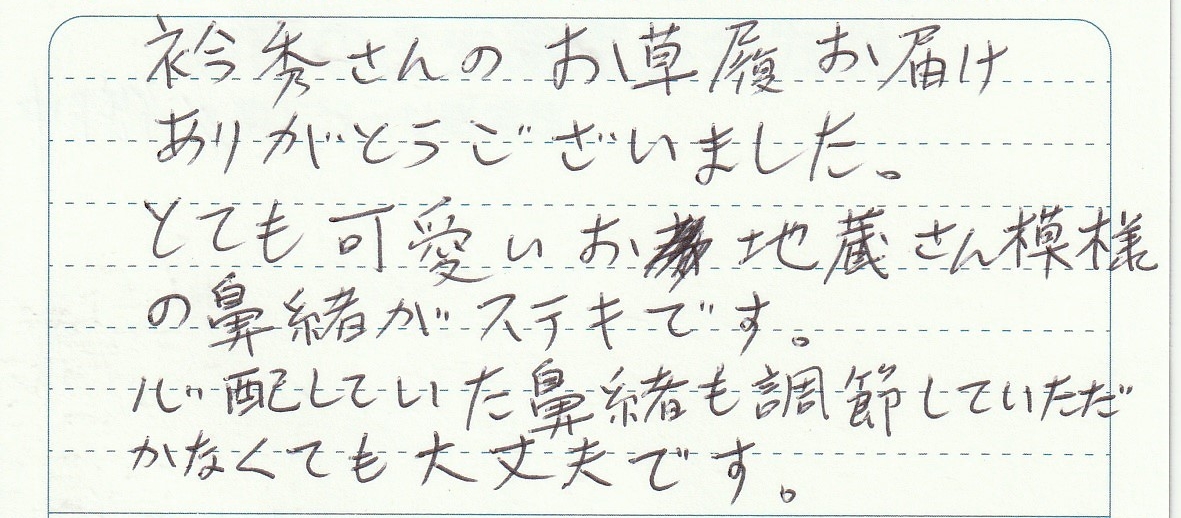 衿秀さんのお草履お届け
ありがとうございました。
とても可愛いお地蔵さん模様
の鼻緒がステキです。
心配していた鼻緒も調節していただ
かなくても大丈夫です。